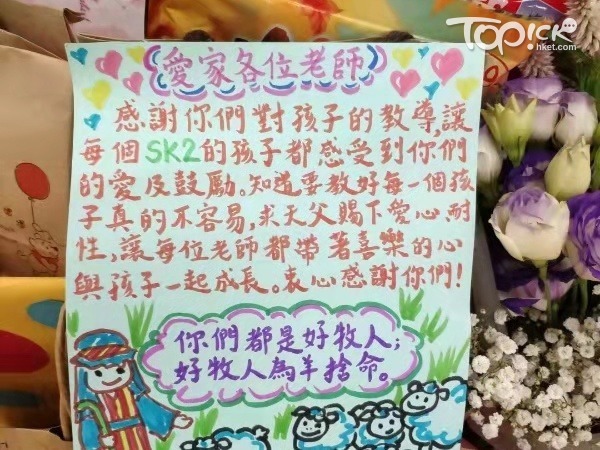 TOPICK
hket.com
愛家各位老師
感謝你們對孩子的教導,讓
每個SK2的孩子都感受到你們
的愛及鼓勵。知道要教好每一個孩
子真的不容易,求天父賜下愛心耐
性,讓每位老師都帶著喜樂的心
與孩子一起成長。衷心感謝你們!
你們都是好牧人;
好牧人為羊捨命。